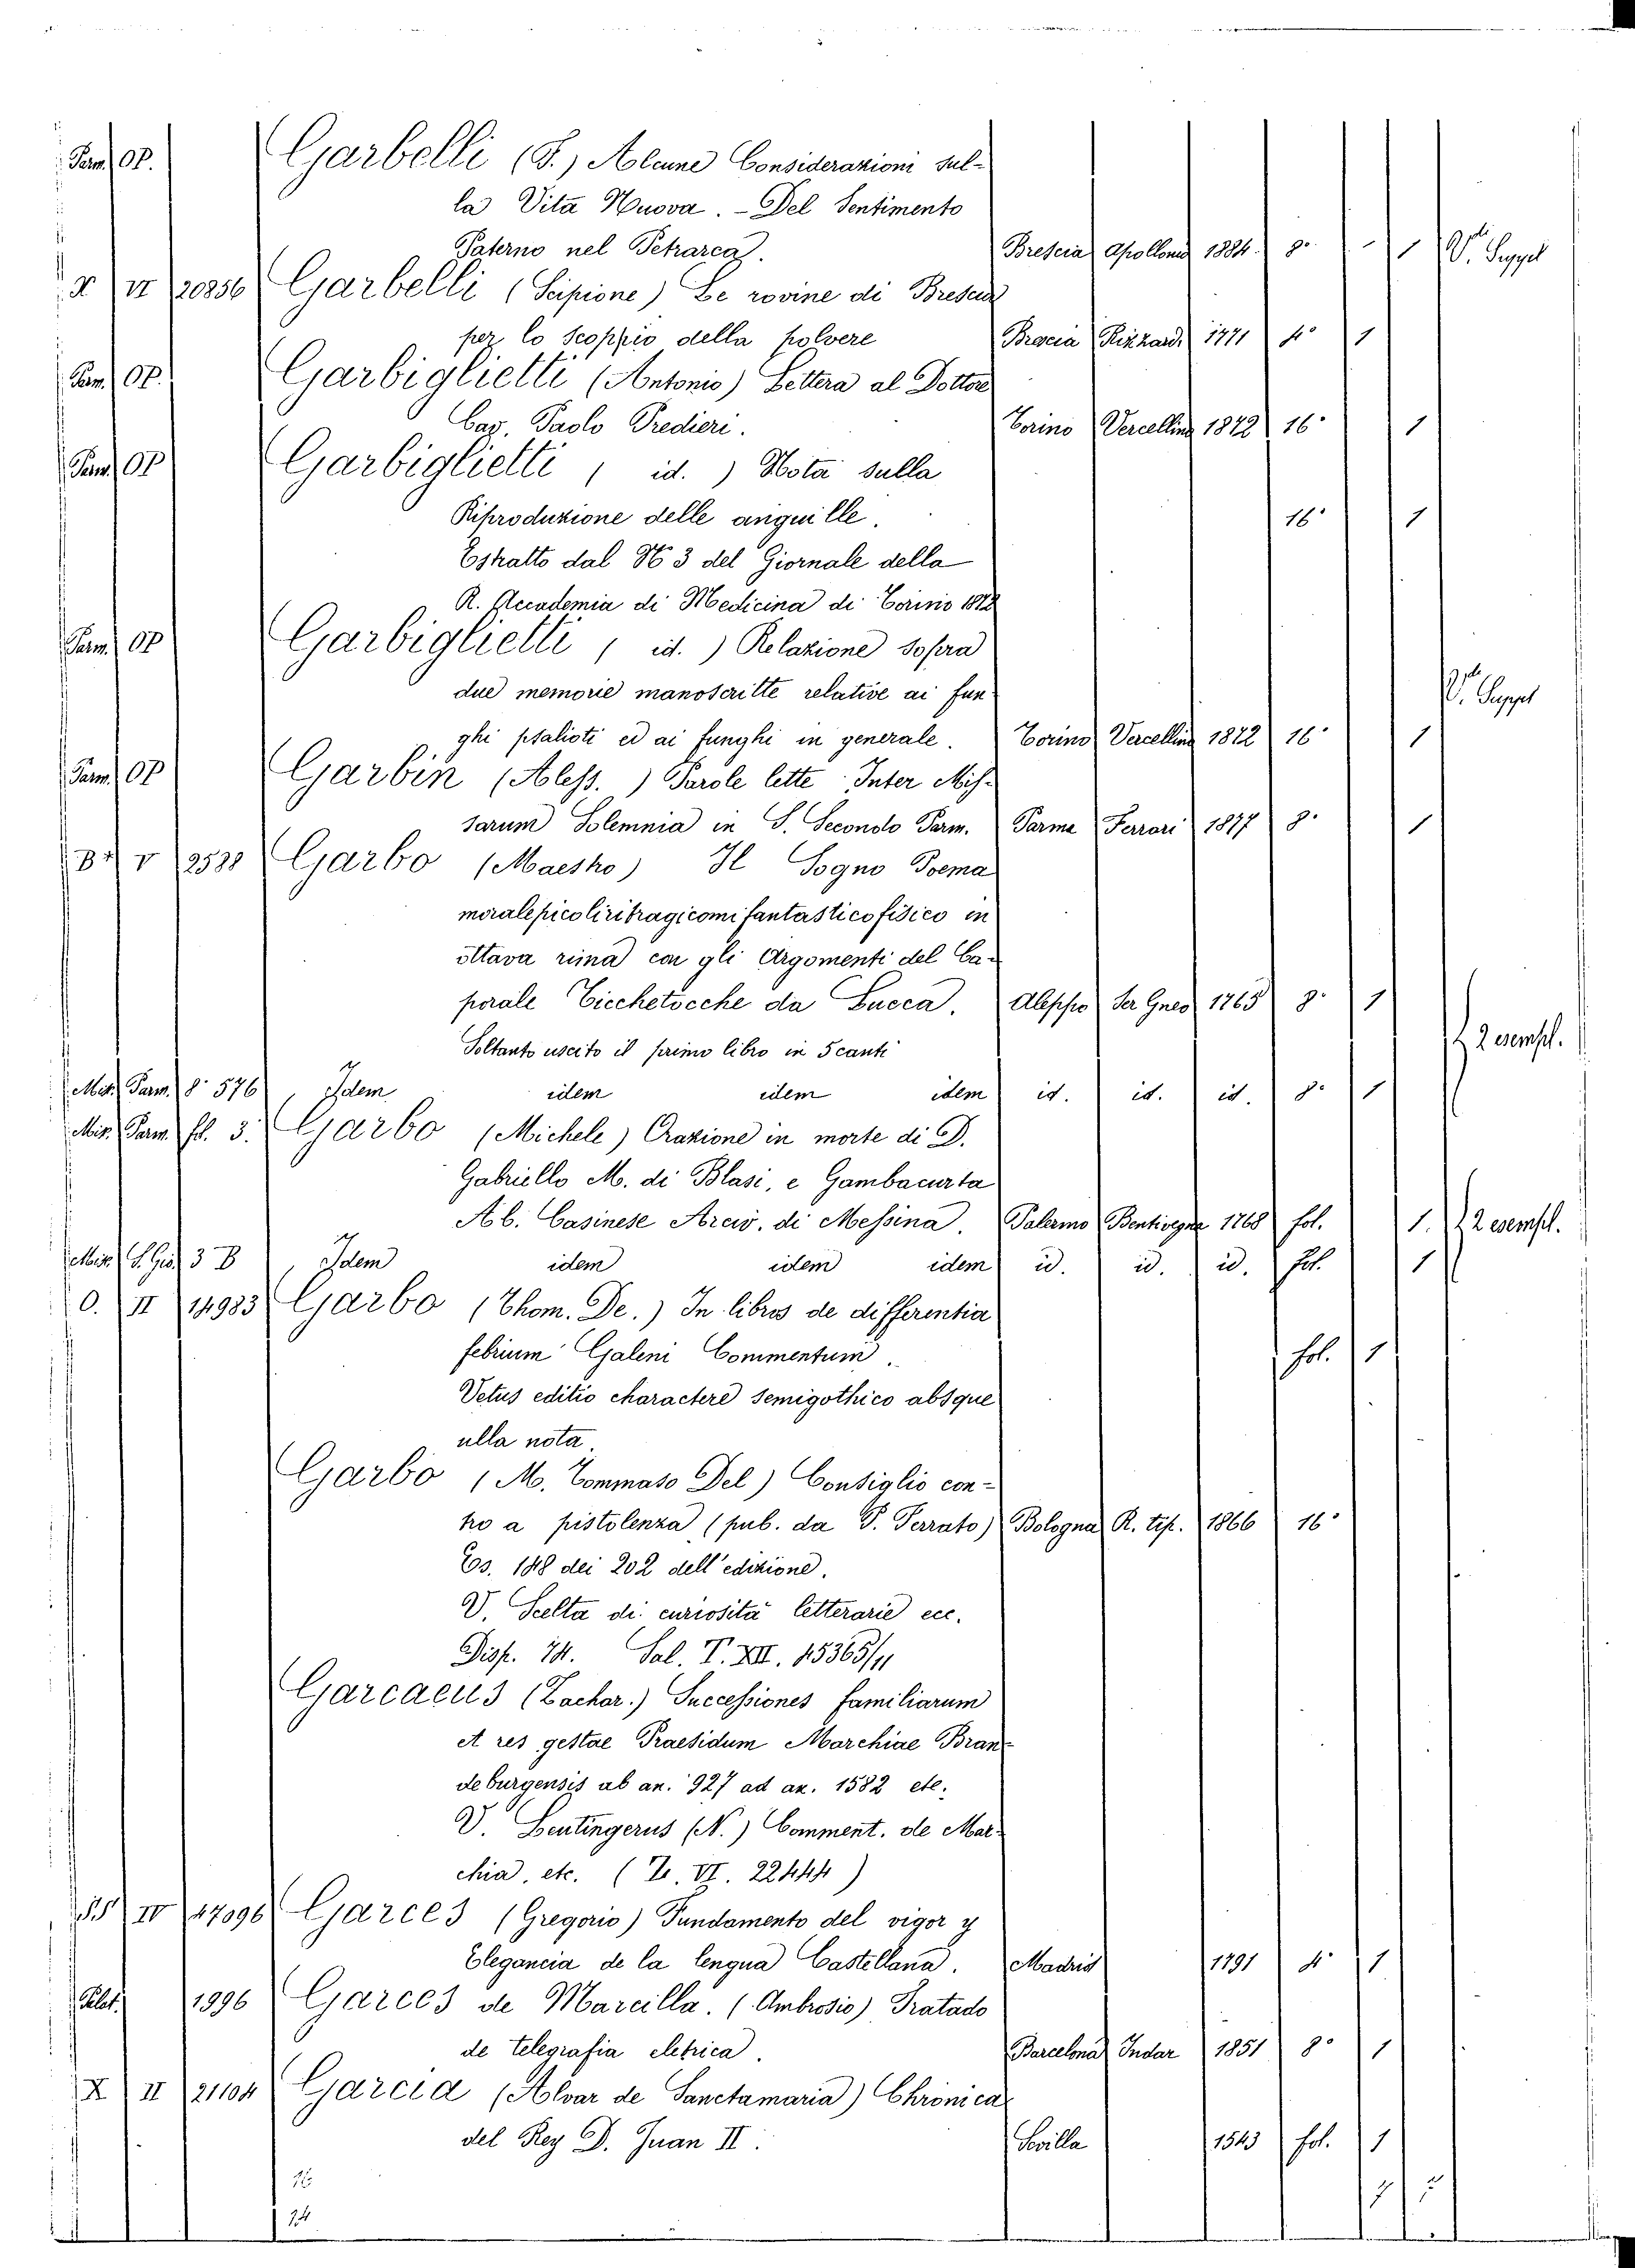 Parm. OP. Garbelli (F.) Alcune Considerazioni sul-
la Vita Nuova. - Del Sentimento
Paterno nel Petrarca. Brescia Apollonio 1884. 8° 1 Vi. Suppel
X VI 20856 Garbelli (Scipione) Le rovine di Brescia
per lo scoppio della polvere Brescia Rizzardi 1771 4° 1
Parm. OP. Garbiglietti (Antonio) Lettera al Dottore
Cav. Paolo Predieri. Torino Vercellino 1872 16° 1
Parm. OP Garbiglietti ( id. ) Nota sulla
Riproduzione delle anguille. 16° 1
Estratto dal N 3 del Giornale della
R. Accademia di Medicina di Torino 1872
Parm. OP Garbiglietti ( id. ) Relazione sopra
due memorie manoscritte relative ai fun- Vi. Suppel
ghi psalioti ed ai funghi in generale. Torino Vercellino 1872 16° 1
Parm. OP Garbin (Aless.) Parole lette Inter Mis-
sarum Solemnia in S. Secondo Parm. Parma Ferrari 1877 8° 1
V 2538 Garbo (Maestro) Il Sogno Poema
moralepicoliritragicomifantasticofisico in
ottava rima con gli Argomenti del Ca-
porale Cicchetocche da Lucca. Aleppo Ser Gneo 1765 8° 1
Soltanto uscito il primo libro in 5 canti 2 esempl.
Mis. Parm. 8° 576 Idem idem idem idem id. id. id. 8° 1
Mis. Parm. fl. 3. Garbo (Michele) Orazione in morte di D.
Gabriello M. di Blasi, e Gambacurta
Ab. Casinese Arciv. di Messina. Palermo Bentivegna 1768 fol. 1. 2 esempl.
Mis. S. Gio. 3 B Idem idem idem idem id. id. id. fol. 1
O. II 14983 Garbo (Thom. De.) In libros de differentia
febrium Galeni Commentum. fol. 1
Vetus editio charactere semigothico absque
ulla nota.
Garbo (M. Tommaso Del) Consiglio con-
tro a pistolenza (pub. da P. Ferrato) Bologna R. tip. 1866 16°
Es. 148 dei 202 dell'edizione.
V. Scelta di curiosità letterarie ecc.
Disp. 74. Sal. T. XII. 15365/11
Garcaeus (Zachar.) Successiones familiarum
et res gestae Praesidum Marchiae Bran-
deburgensis ab an. 927 ad an. 1582 etc.
V. Leutingerus (N.) Comment. de Mar-
chia, etc. (Z. VI. 22444)
SS IV 17096 Garces (Gregorio) Fundamento del vigor y
Elegancia de la lengua Castellana. Madrid 1791 4° 1
Palat. 1996 Garces de Marcilla. (Ambrosio) Tratado
de telegrafia eletrica. Barcelona Indar 1851 8° 1
X II 21104 Garcia (Alvar de Sanctamaria) Chronica
del Rey D. Juan II. Sevilla 1543 fol. 1